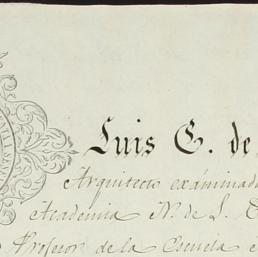 Luis G. de
Arquitecto exáminad
Academia N. de S.
Profesor de la Escuela